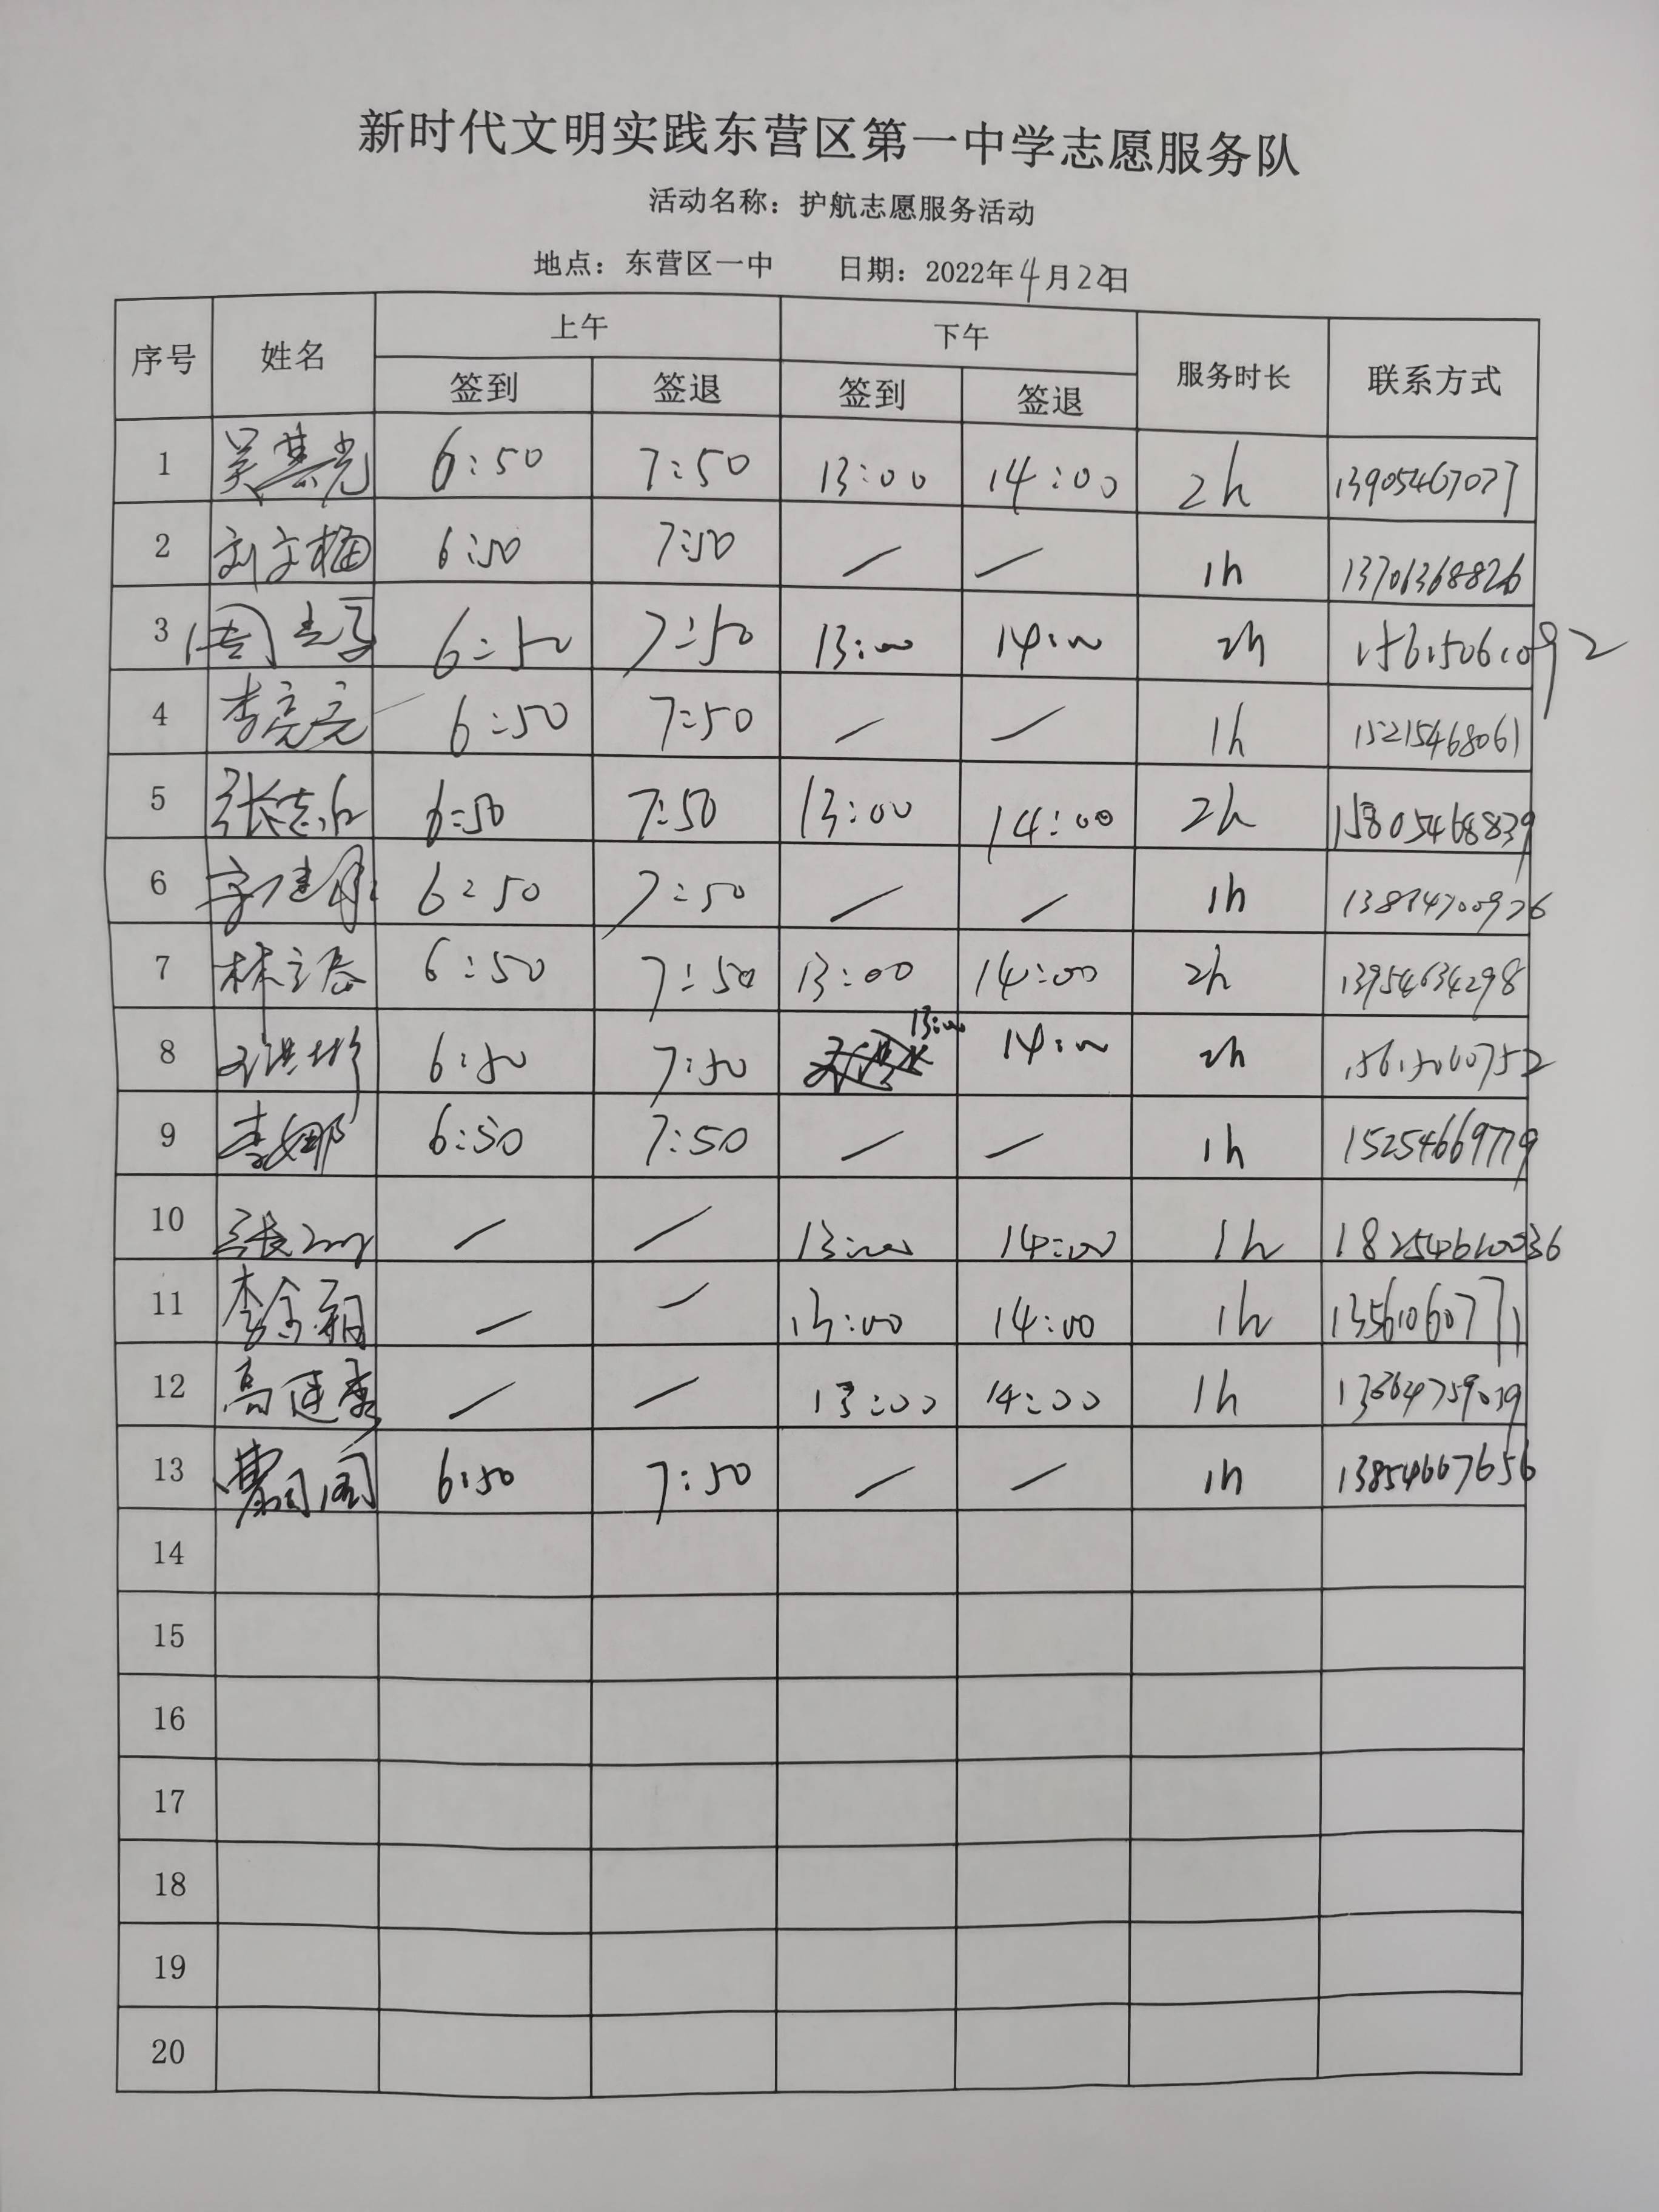 新时代文明实践东营区第一中学志愿服务队
活动名称：护航志愿服务活动
地点：东营区一中 日期：2022年4月22日
序号 姓名 上午 下午 服务时长 联系方式
签到 签退 签到 签退
1 吴基光 6:50 7:50 13:00 14:00 2h 13905467077
2 刘文梅 6:50 7:50 / / 1h 13706368826
3 周 6:50 7:50 13:00 14:00 2h 15615061092
4 李亮亮 6:50 7:50 / / 1h 15215468061
5 张志 6:50 7:50 13:00 14:00 2h 15805468839
6 6:50 7:50 / / 1h
7 林 6:50 7:50 13:00 14:00 2h 13954634298
8 6:50 7:50 13:00 14:00 2h 15615060752
9 李娜 6:50 7:50 / / 1h 15254669779
10 张 / / 13:00 14:00 1h 18254610036
11 李 / / 13:00 14:00 1h 13561060771
12 高建 / / 13:00 14:00 1h
13 6:50 7:50 / / 1h 13854667656
14
15
16
17
18
19
20